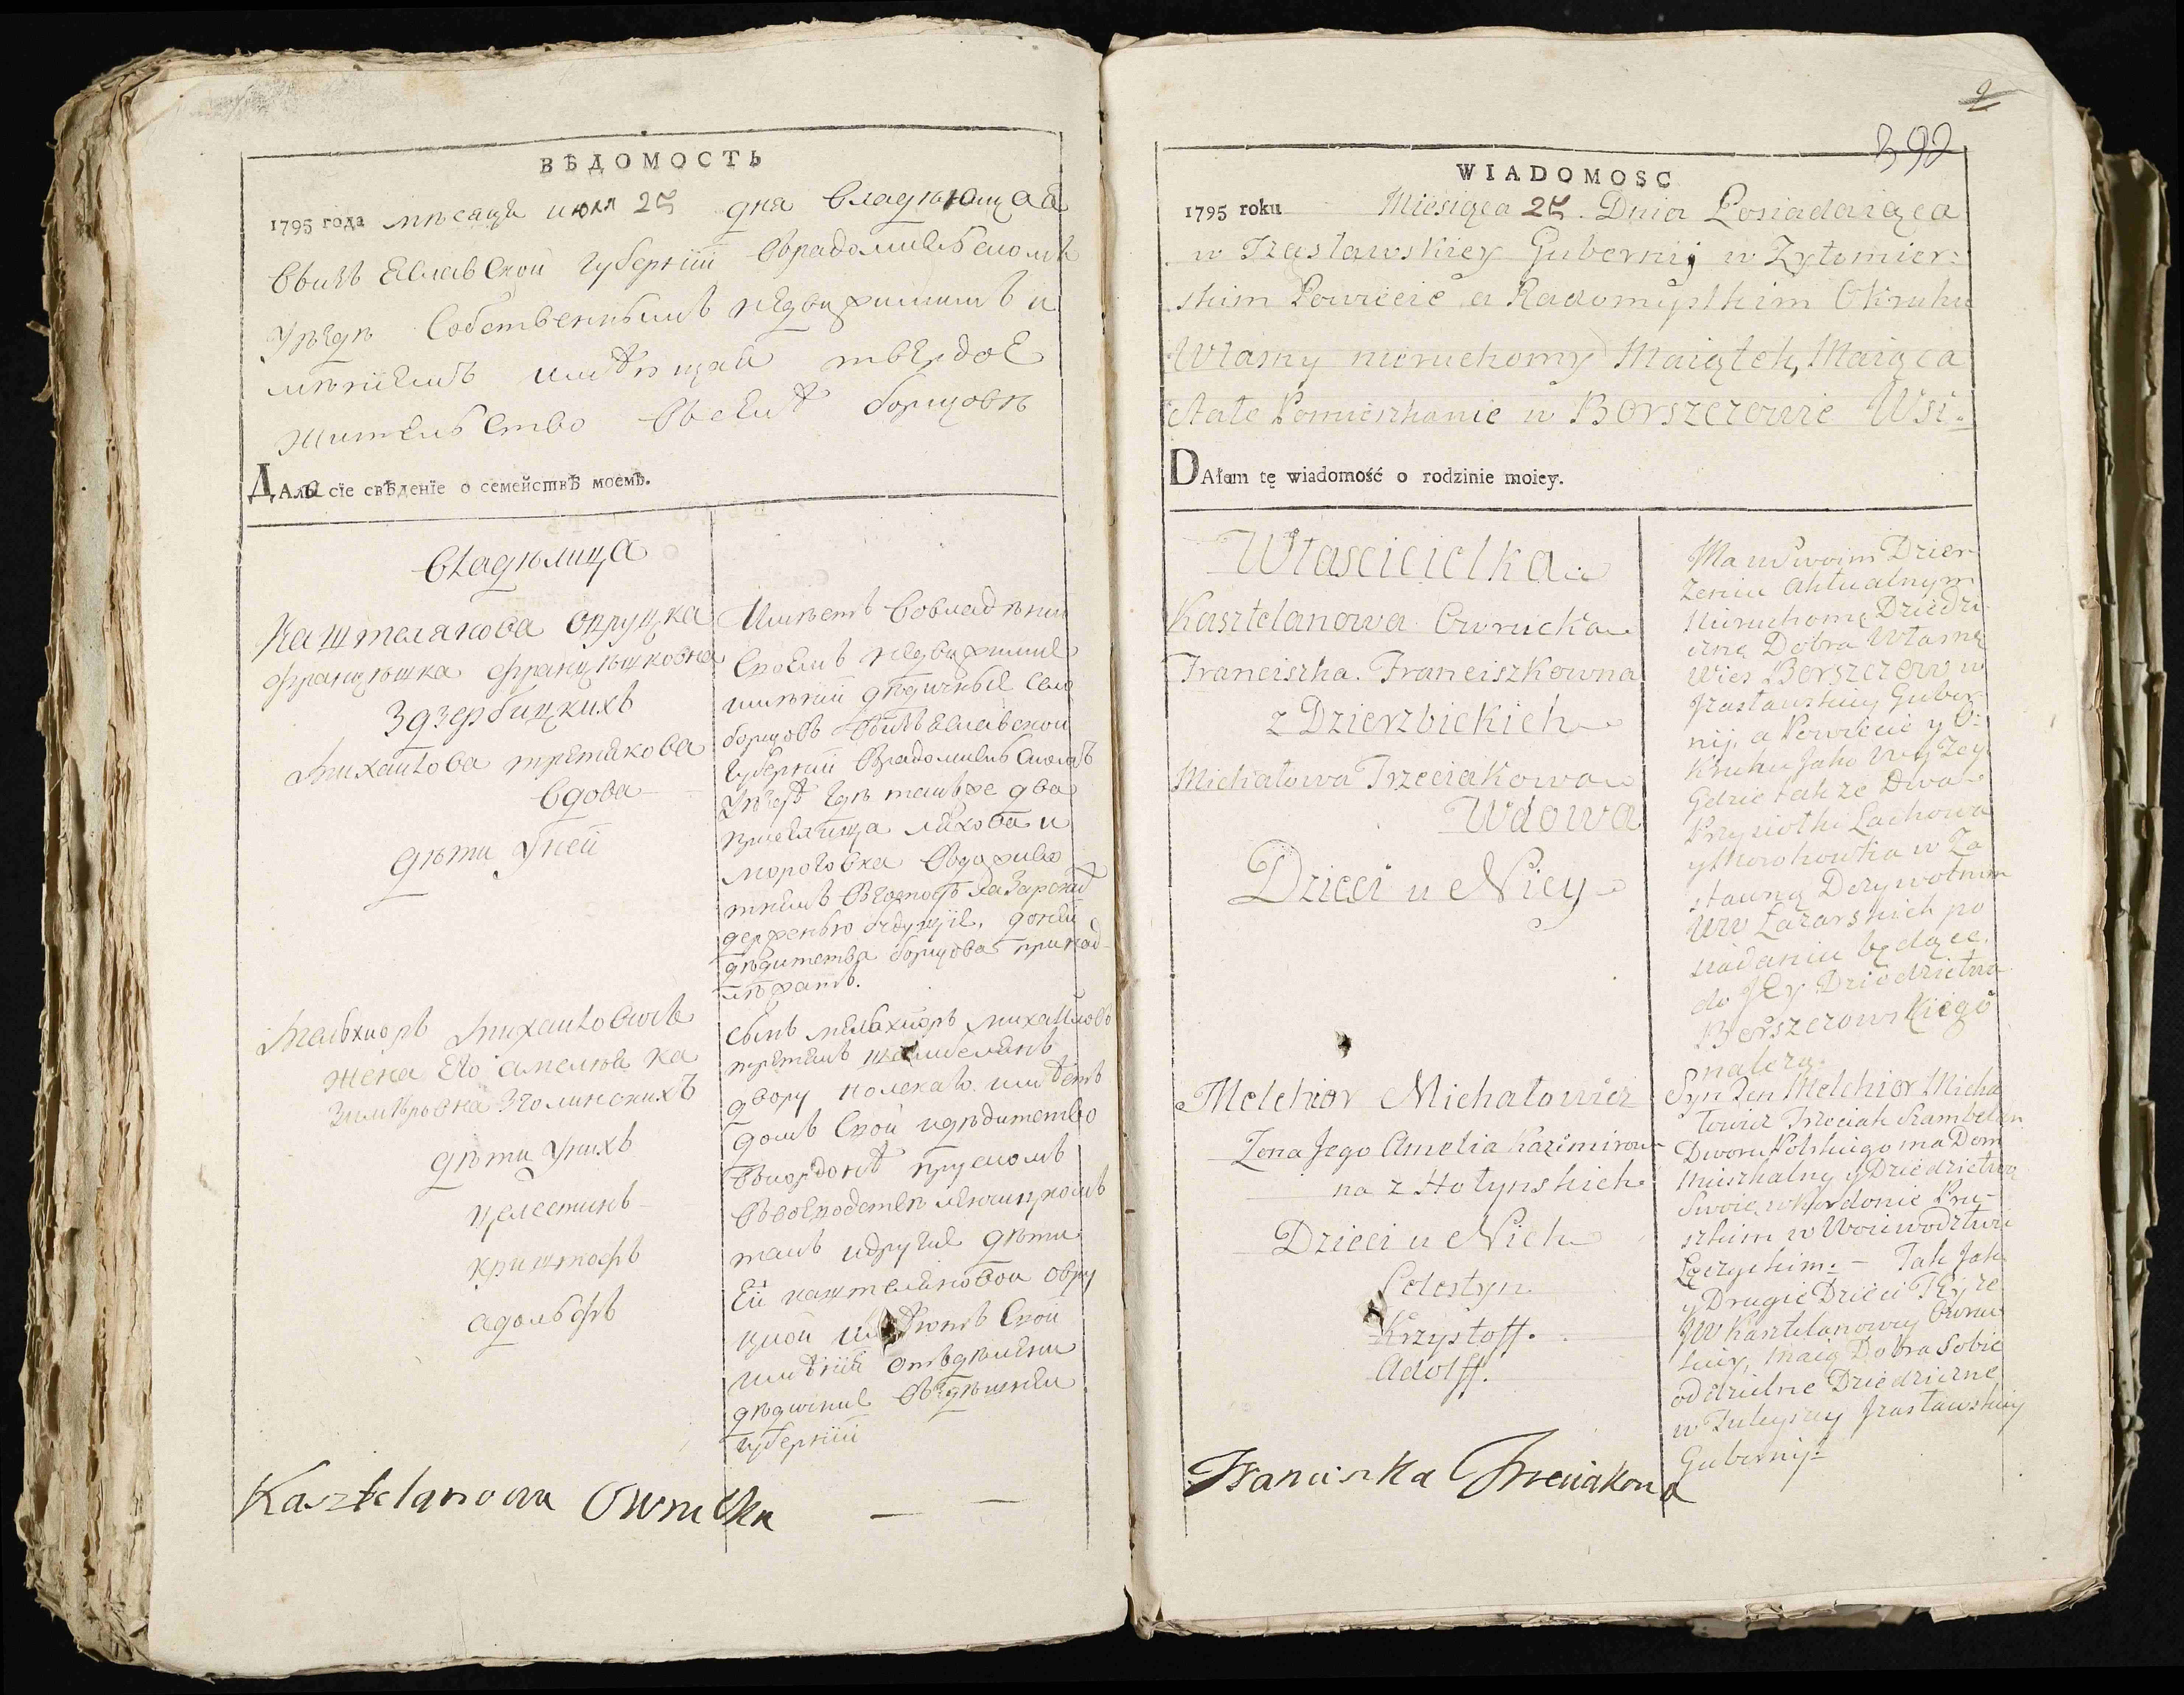 ВѢДОМОСТЬ
1795 года мѣсяца июля 25 дня владѣющая
въизъяславской губернїи врадомисльскомъ
уѣздѣ собственнымъ недвижимимъ и
мѣнїемъ имѣющая твердое
жительство въселѣ борщовѣ
ДАла сїе свѣденїе о семействѣ моемъ.
владѣлица
каштелянова овруцка
францѣшка францѣшковна
Здзербицкихъ
михайлова третякова
вдова
дѣти у ней
Мельхиоръ михайловичъ
жена его амелия ка
зимировна зголинскихъ
дѣти унихъ
целестинъ
криштофъ
адольфъ
Имѣетъ вовладѣнии
своемъ недвижимие
имѣнии дѣдичные село
борщовъ визъяславской
губернии врадомисльскомъ
уѣздѣ гдѣ также два
приселища ляхова и
мороговка
держенью будущїе, доней
дѣдитства борщова принад-
лѣжатъ.
сынъ мельхиоръ михайловъ
третякъ шамбелянъ
двору полскаго имѣетъ
домъ свой идѣдитство
вкордонѣ прускомъ
ввоеводствѣ ленчицкомъ
такъ идругие дѣти
ей каштеляновой овру
цкой имѣютъ свои
имѣнии отъдѣлени
дѣдични въздѣшней
губернии
Kasztelanowa Owrucka
2
392
WIADOMOSC
1795 roku Miesiąca 25. Dnia Posiadaiąca
w Izasławskiey Gubernij w Zytomier-
skim Powiecie a Radomyslkim Okruhu
Własny nieruchomy Maiątek, Maiąca
stałe Pomieszkanie w Borszczowie Wsi.
DAłam tę wiadomość o rodzinie moiey.
Własciciełka
Kasztelanowa Owrucka
Franciszka Franciszkowna
z Dzierzbickich
Michałowa Trzeciakowa
Wdowa
Dzieci u Niey
Melchior Michałowicz
Zona Jego Amelia Kazimirow-
na z Hołynskich
Dzieci u Nich
Celestyn
Krzystoff.
Adolff.
Ma w Swoim Dzier-
zeniu Aktualnym
Nieruchomę Dziedzi-
czne Dobra Własne
Wies Borszczow w
Izasławskiey Guber-
nij, a Powiecie y O-
kruhu Jako Wyzey
Gdzie takze Dwa
Przysiołki Lachowa
y Morohowka w Za
stawną Dozywotnim
WW Łazarskich po
siadaniu będące,
do JEy Dziedzictwa
Borszczowskiego
nalezą.
Syn Ten Melchior Micha
łowicz Trzeciak Szambelan
Dworu Polskiego ma Dom
Mieszkalny y Dziedzictwo
Swoie w Kordonie Pru-
skim w Woiewodztwie
Łęczyckim. - Tak Jak
y Drugie Dzieci TEyze
JW Kasztelanowey Owruc
kiey, Maią Dobra Sobie
oddzielne Dziedziczne
w Tuteyszey Izasławskiey
Gubernij.
Franciszka Trzeciakowa